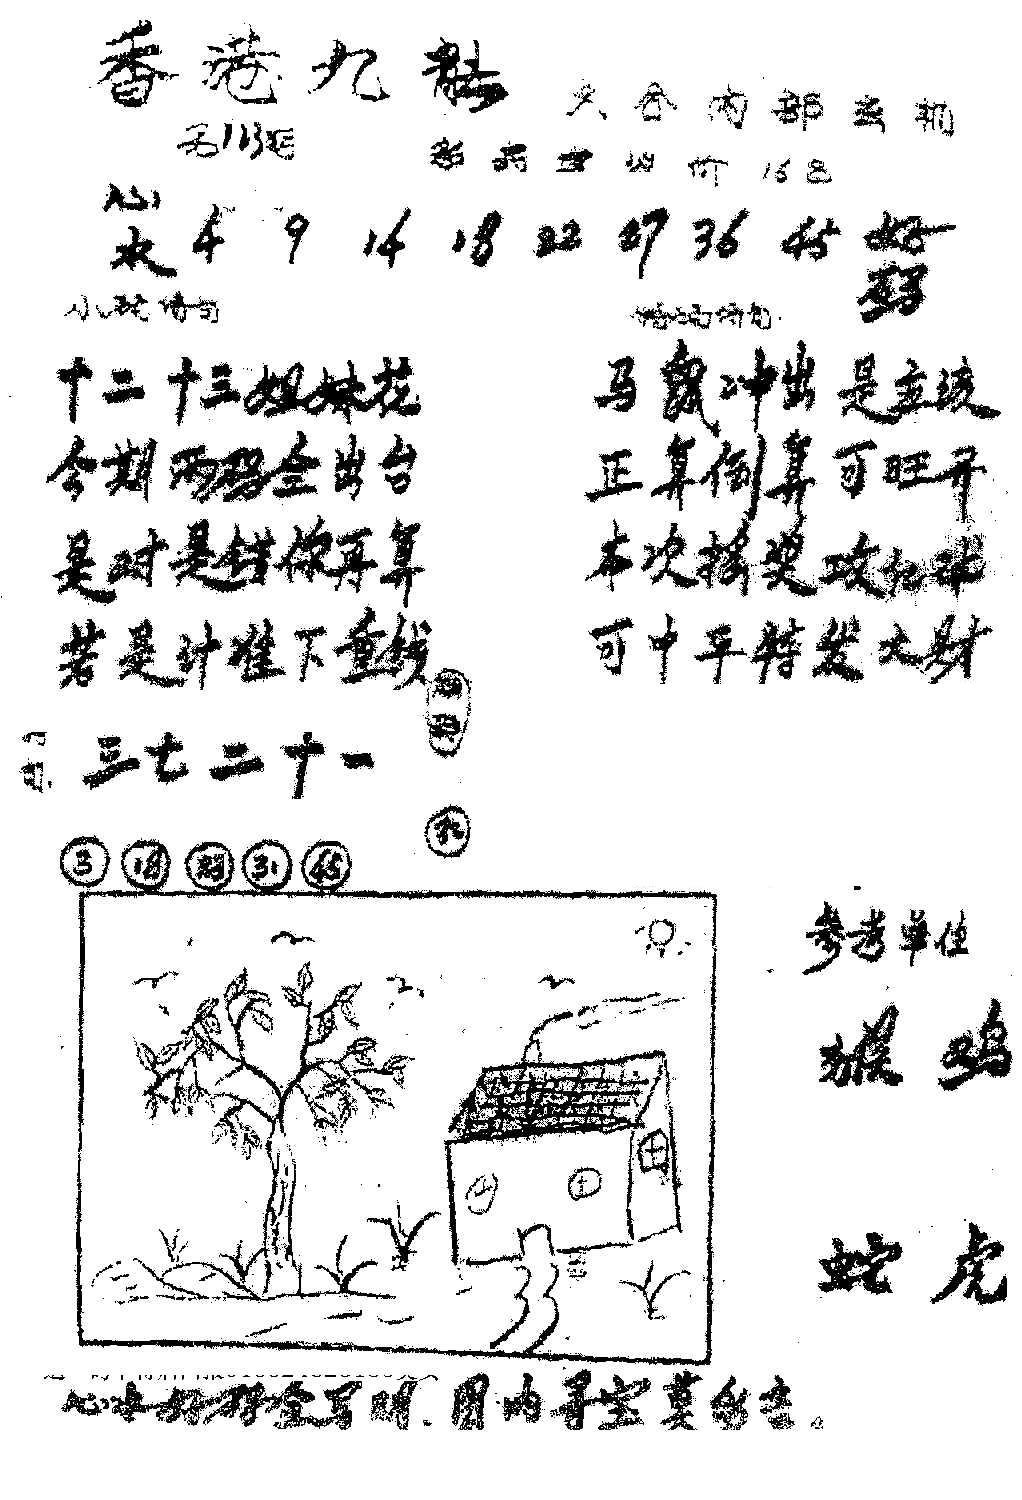 香港九龙
六合内部玄机
第113期
彩码
价16包
心水 4 9 14 18 22 27 36 45 好码
小玩诗句
诗句
十二十三姐妹花
今期两码全出台
是对是错你再算
若是计准下重线
马鼠冲出是立波
正算倒算可旺开
本次搖奖攻
可中平特发大财
三七二十一
3 18 31 45
参考单位
猴 鸡
蛇 虎
心水好码全写明.图内寻宝莫乱去.